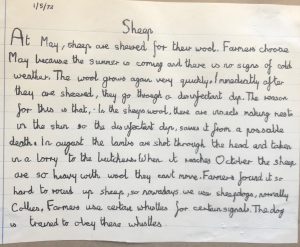 1/5/72
Sheep
At May, sheep are sheared for their wool. Farmers choose
May because the summer is coming and there is no signs of cold
weather. The wool grows again very quickly. Immediatly after
they are sheared, they go through a disinfectant dip. The reason
for this is that, - In the sheeps wool, there are insects making nests
in the skin so the disinfectant dip, saves it from a possable
death. In august the lambs are shot through the head and taken
in a lorry to the butchers. When it reaches October the sheep
are so heavy with wool they cant move. Farmers found it so
hard to round up sheep, so nowadays we use sheepdogs, normally
Collies, Farmers use certain whistles for certain signals. The dog
is trained to obey these whistles